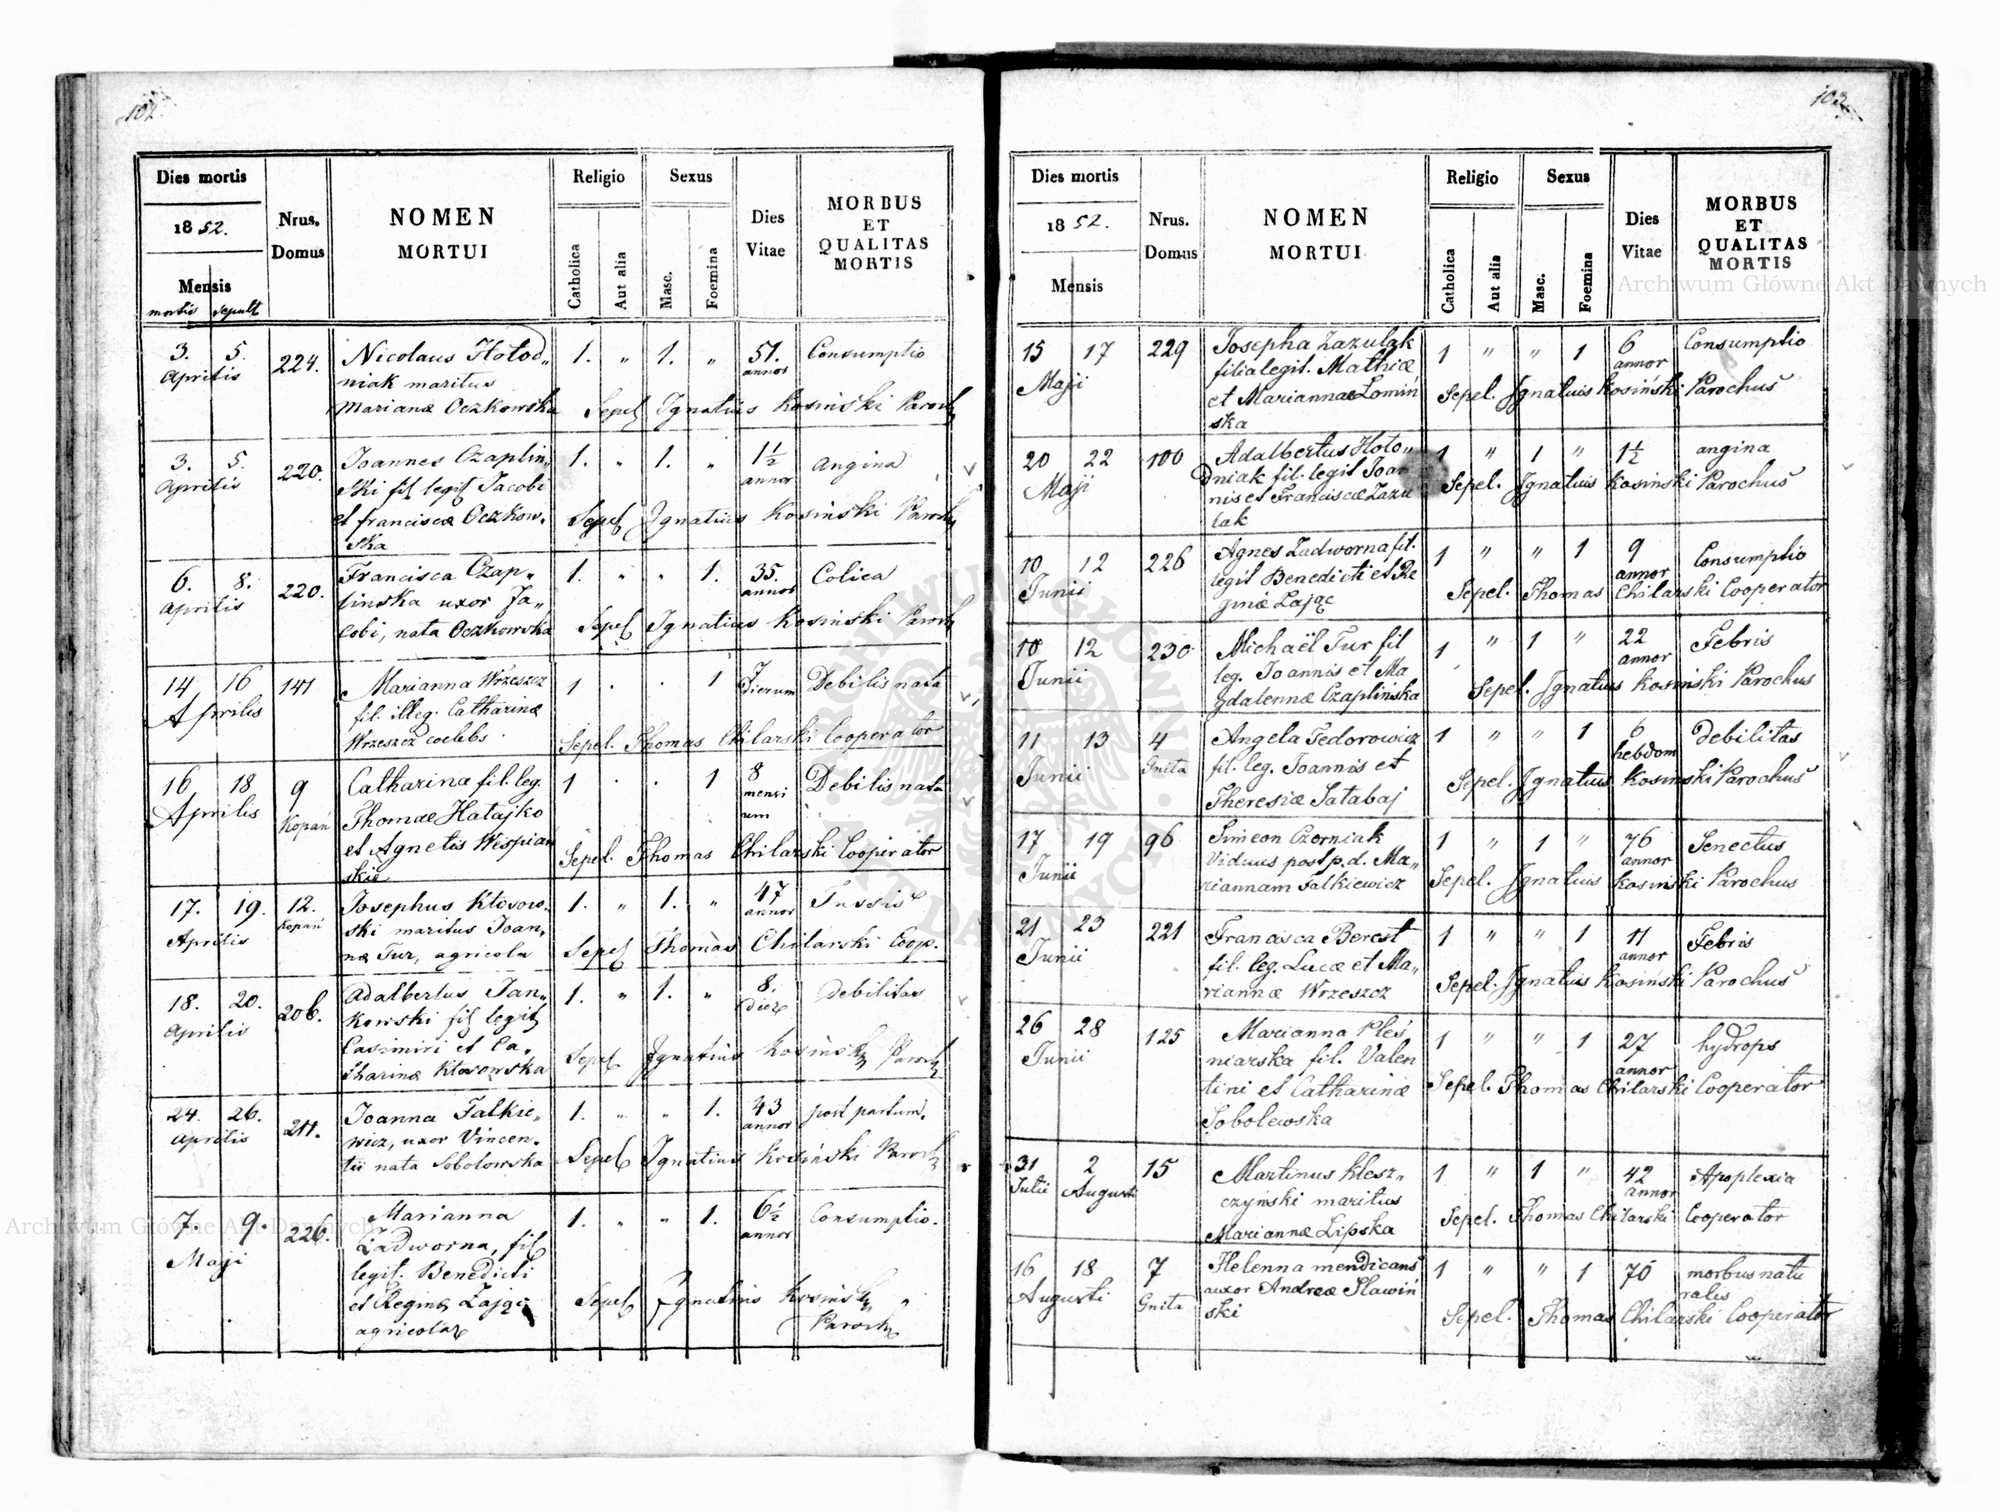 102.
Dies mortis
1852.
Mensis
mortis sepult
Nrus.
Domus
NOMEN
MORTUI
Religio
Catholica
Aut alia
Sexus
Masc.
Foemina
Dies
Vitae
MORBUS
ET
QUALITAS
MORTIS
3. 5. 224. Nicolaus Hołod„ 1. „ 1. „ 51. Consumptio
Aprilis niak maritus annor
Marianæ Oczkowska Sepel Ignatius Kosiński Paroch
3. 5. 220. Joannes Czaplin„ 1. „ 1. „ 1½ angina
Aprilis ski fil legit Jacobi annor
et Franciscæ Oczkow„ Sepel Ignatius Kosiński Paroch
ska
6. 8. 220. Francisca Czap„ 1. „ „ 1. 35. Colica
Aprilis linska uxor Ja„ annor
cobi, nata Oczkowska Sepel Ignatius Kosinski Paroch
14 16 141 Marianna Wrzeszcz 1 . . 1 7 Debilis nata
Aprilis fil. illeg. Catharinæ dierum
Wrzeszcz coelebs. Sepel. Thomas Chilarski Cooperator
16 18 9 Catharina fil. leg. 1 . . 1 8 Debilis nata
Aprilis Kopań Thomae Hatajko mensi
rum
et Agnetis Wespian Sepel. Thomas Chilarski Cooperator
skie
17. 19. 12. Josephus Kłosow„ 1. „ 1. „ 47 Tussis
Aprilis Kopań ski maritus Joan„ annor
næ Tur, agricola Sepel Thomas Chilarski Coop.
18. 20. 206. Adalbertus Jan„ 1. „ 1. „ 8. debilitas
Aprilis kowski fil legit dier
Casimiri et Ca„ Sepel Ignatius Kosinski Paroch
tharinæ Kłosowska
24. 26. 211. Joanna Falkie„ 1. „ „ 1. 43 post partum.
Aprilis wicz, uxor Vincen„ annor
tii nata Sobolowska Sepel Ignatius Kosiński Paroch
7. 9. 226. Marianna 1. „ „ 1. 6½ Consumptio.
Maji Zadworna, fil annor
legit. Benedicti
et Reginæ Zając Sepel Ignatius Kosinski
agricolar Paroch
103
Dies mortis
1852.
Mensis
Nrus.
Domus
NOMEN
MORTUI
Religio
Catholica
Aut alia
Sexus
Masc.
Foemina
Dies
Vitae
MORBUS
ET
QUALITAS
MORTIS
15 17 229 Josepha Zazulak 1 „ „ 1 6 Consumptio
Maji filia legit. Mathiæ annor
et Mariannae Łomiń Sepel. Ignatuis Kosiński Parochus
ska
20 22 100 Adalbertus Hoło„ 1 „ 1 „ 1½ angina
Maji dniak fil. legit Joan Sepel. Ignatuis Kosiński Parochus
nis et Franciscæ Zazu
lak
10 12 226 Agnes Zadworna fil. 1 „ „ 1 9 Consumptio
Junii legit Benedicti et Re annor
ginæ Zając Sepel. Thomas Chilarski Cooperator
10 12 230 Michaël Tur fil 1 „ 1 „ 22 Febris
Junii leg. Joannis et Ma annor
gdalennæ Czaplińska Sepel. Ignatius Kosinski Parochus
11 13 4 Angela Fedorowicz 1 „ „ 1 6 debilitas
Junii Gnita fil. leg. Joannis et hebdom
Theresiæ Satabaj Sepel. Ignatius Kosinski Parochus
17 19 96 Simeon Czorniak 1 „ 1 „ 76 Senectus
Junii Viduus post p. d. Ma„ annor
riannam Falkiewicz Sepel. Ignatuis Kosiński Parochus
21 23 221 Francisca Berest 1 „ „ 1 11 Febris
Junii fil. leg. Lucæ et Ma„ annor
riannæ Wrzeszcz Sepel. Ignatuis Kosiński Parochus
26 28 125 Marianna Pleś 1 „ „ 1 27 hydrops
Junii niarska fil. Valen annor
tini et Catharinæ Sepel. Thomas Chilarski Cooperator
Sobolewska
31 2 15 Martinus Klesz„ 1 „ 1 „ 42 Apoplexia
Julii Augusti czyński maritus annor
Mariannæ Lipska Sepel. Thomas Chilarski Cooperator
16 18 7 Helenna mendicans 1 „ „ 1 70 morbus natu
Augusti Gnita uxor Andreæ Sławiń ralis
ski Sepel. Thomas Chilarski Cooperator
Archiwum Główne Akt Dawnych
Archiwum Główne Akt Dawnych
ARCHIWUM GŁÓWNE AKT DAWNYCH